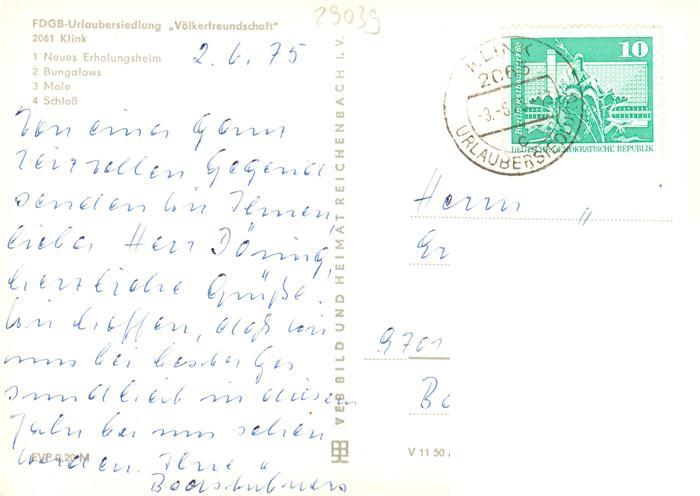 29039
FDGB-Urlaubersiedlung „Völkerfreundschaft"
2061 Klink
1 Neues Erholungsheim
2 Bungalows
3 Mole
4 Schloß
2.6.75
Von einer ganz
reizvollen Gegend
senden wir Ihnen,
lieber Herr Döring,
herzliche Grüße.
Wir hoffen, daß wir
uns bei bester Ge
sundheit in diesem
Jahr bei uns sehen
werden. Ihre
EVP 0,20 M
VEB BILD UND HEIMAT REICHENBACH I. V.
KLINK
2065
-3.-6.
c
URLAUBERSIEDL
10
DEUTSCHE DEMOKRATISCHE REPUBLIK
Herrn
Er
9701
V 11 50